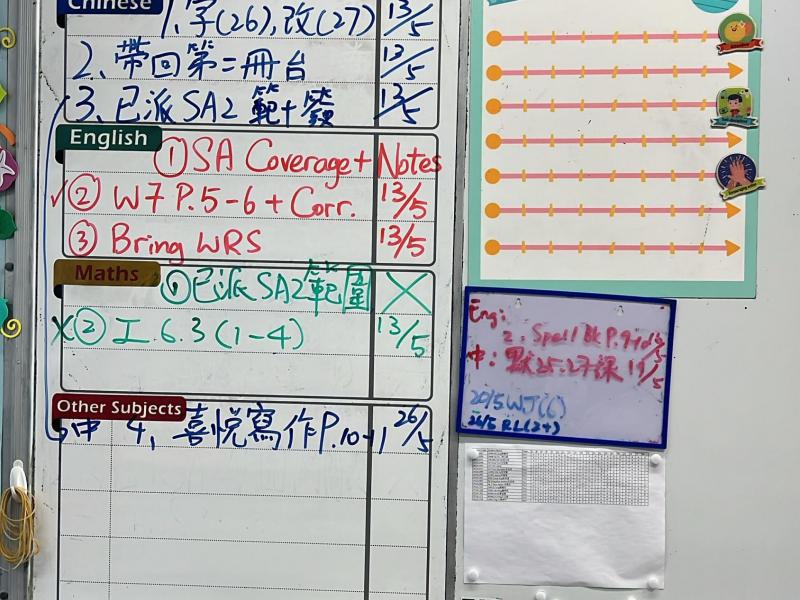 Chinese
1. 字(26), 改(27) 13/5
2. 帶回第二冊台 13/5
3. 已派SA2 範+ 13/5
English
① SA Coverage + Notes
✓② W7 P.5-6 + Corr. 13/5
③ Bring WRS 13/5
Maths
① 已派SA2範圍 X
X② 工 6.3 (1-4) 13/5
Other Subjects
中 4. 喜悅寫作P.10-11 26/5
Eng:
2. Spell Bk P.9
中: 默25.27課 19/5
20/5 WJ(6)
26/5 RL(24)